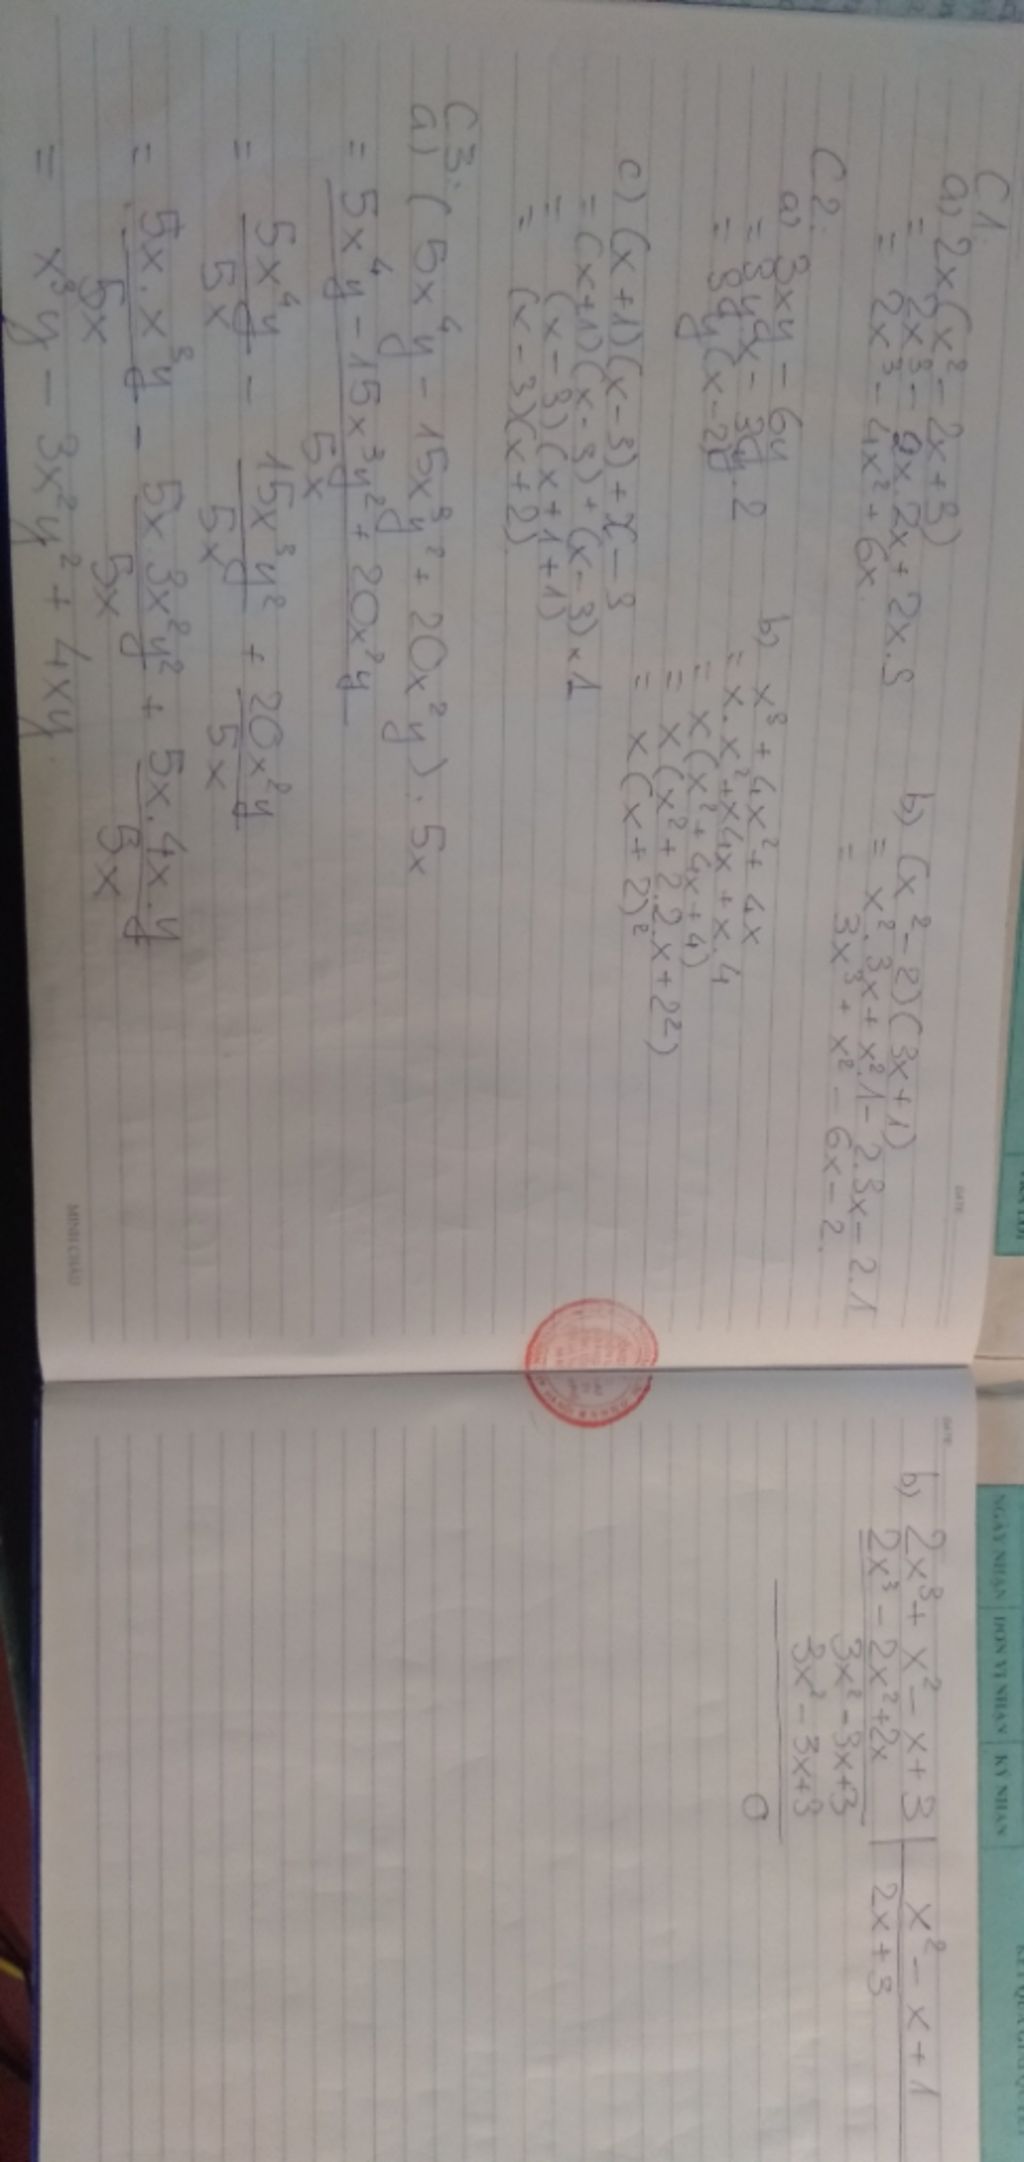 C1.
a) 2x(x² - 2x + 3)
= 2x³ - 2x.2x + 2x.3
= 2x³ - 4x² + 6x.
b) (x² - 2)(3x + 1)
= x².3x + x².1 - 2.3x - 2.1
= 3x³ + x² - 6x - 2.
C2.
a) 3xy - 6y
= 3yx - 3y.2
= 3y(x - 2)
b) x³ + 4x² + 4x
= x.x² + x4x + x.4
= x(x² + 4x + 4)
= x(x² + 2.2.x + 2²)
= x(x + 2)²
c) (x + 1)(x - 3) + x - 3
= (x + 1)(x - 3) + (x - 3) × 1
= (x - 3)(x + 1 + 1)
= (x - 3)(x + 2)
C3:
a) (5x⁴y - 15x³y² + 20x²y) . 5x
= 5x⁴y - 15x³y² + 20x²y
5x
= 5x⁴y - 15x³y² + 20x²y
5x 5x 5x
= 5x.x³y - 5x.3x²y² + 5x.4x.y
5x 5x 5x
= x³y - 3x²y² + 4xy
MINH CHÂU
DATE
b) 2x³ + x² - x + 3 | x² - x + 1
2x³ - 2x² + 2x | 2x + 3
3x² - 3x + 3
3x² - 3x + 3
0
DATE
NGÀY NHẬN ĐƠN VỊ NHẬN KÝ NHẬN